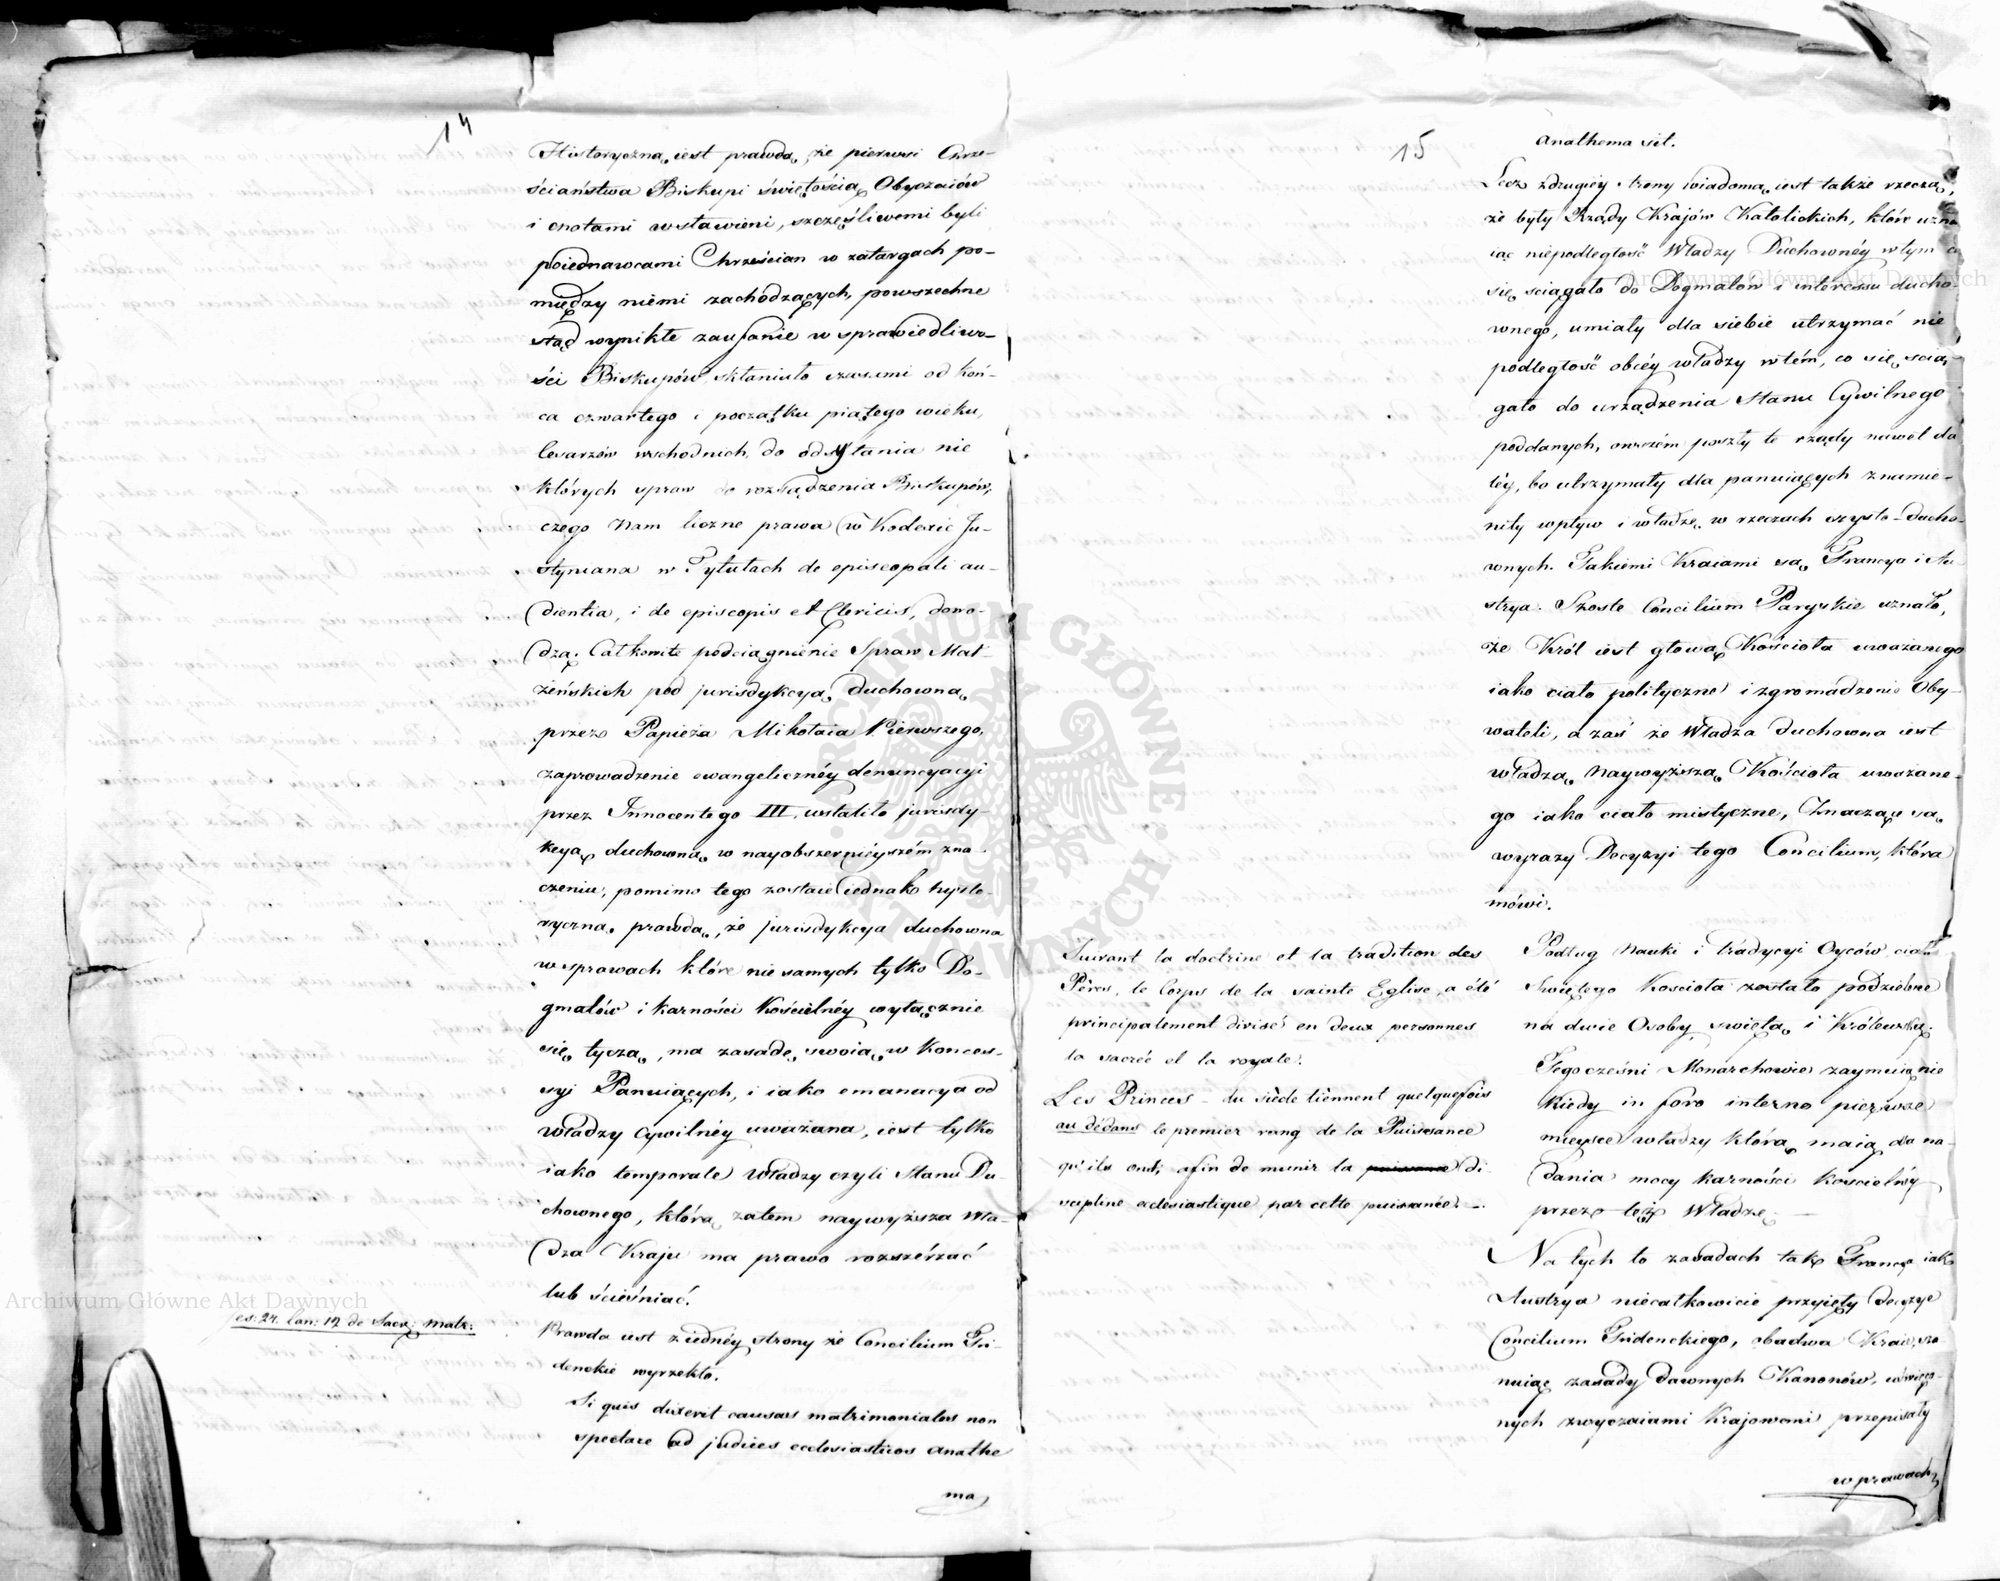 14
Historyczną iest prawdą, że pierwsi Chrze-
ściaństwa Biskupi świętością Obyczaiów
i cnotami wsławieni, szczęśliwemi byli
poiednawcami Chrześcian w zatargach po-
między niemi zachodzących, powszechne
stąd wynikłe zaufanie w sprawiedliwo-
ści Biskupów skłaniało czasami od koń-
ca czwartego i początku piątego wieku,
Cesarzów wschodnich, do odsyłania nie
których spraw do rozsądzenia Biskupów,
czego nam liczne prawa w Kodexie Ju-
styniana w Tytułach de episcopali au-
dientia, i de episcopis et Clericis, dowo-
dzą. Całkowite podciągnienie Spraw Mał-
żeńskich pod jurisdykcyą duchowną
przez Papieża Mikołaia Pierwszego,
zaprowadzenie ewangelicznéy denuncyacyi
przez Innocentego III. ustaliło jurisdy-
kcyą duchowną w nayobszernieyszém zna-
czeniu, pomimo tego zostaie iednak hysto-
ryczną prawdą, że jurisdykcya duchowna
w sprawach które nie samych tylko Do-
gmatów i karności Kościelnéy wyłącznie
się tyczą, ma zasadę swoią w konces-
syi Panuiących, i iako emanacya od
władzy Cywilnéy uważana, iest tylko
iako temporale władzy czyli Stanu Du-
chownego, którą zatem naywyższa Wła-
dza Kraju ma prawo rozszérzać
lub ścieśniać.
ses: 24. Can: 12 de Sacr: matr:
Prawda iest z iednéy strony że Concilium Tri-
denckie wyrzekło.
Si quis dixerit causas matrimoniales non
spectare ad judices ecclesiasticos anathe
ma
15
Anathema sit.
Lecz z drugiéy strony wiadomą iest także rzeczą,
że były Rządy Krajów Katolickich, które uzna
iąc niepodległość Władzy Duchownéy w tym co
się sciągało do Dogmatów i interessu ducho-
wnego, umiały dla siebie utrzymać nie
podległość obcéy władzy w tém, co się scią-
gało do urządzenia Stanu Cywilnego
poddanych, owszém poszły te rządy nawet da
léy, bo utrzymały dla panuiących znamie-
nity wpływ i władzę w rzeczach czysto-ducho-
wnych. Takiemi Kraiami są Francya i Au
strya. Szoste Concilium Paryskie uznało,
że Król iest głową Kościoła uważanego
iako ciało polityczne i zgromadzenie Oby-
wateli, a zaś że Władza duchowna iest
władzą naywyższą Kościoła uważane-
go iako ciało mistyczne, Znaczące są
wyrazy Decyzyi tego Concilium, która
mówi.
Suivant la doctrine et la tradition des
Pères, le Corps de la sainte Eglise, a été
principalement divisé en deux personnes
la sacrée et la royale.
Les Princes du siècle tiennent quelquefois
au dédans le premier rang de la Puissance
qu'ils ont, afin de munir la puissance di-
scipline eclesiastique par cette puissance. —.
Podług nauki i tradycyi Oyców, ciało
Swiętego Kościoła zostało podzielone
na dwie Osoby, swiętą i Królewską.
Tegocześni Monarchowie zaymuią nie
kiedy in foro interno pierwsze
mieysce władzy którą maią dla na-
dania mocy karności Kościelnéy
przez też Władzę. —
Na tych to zasadach tak Francya iak
Austrya niecałkowicie przyięły decyzye
Concilium Tridenckiego, obadwa Kraie, sza
nuiąc zasady dawnych Kanonów, uświęco-
nych zwyczaiami Krajowemi przepisały
w prawach
Archiwum Główne Akt Dawnych
Archiwum Główne Akt Dawnych
ARCHIWUM GŁÓWNE AKT DAWNYCH